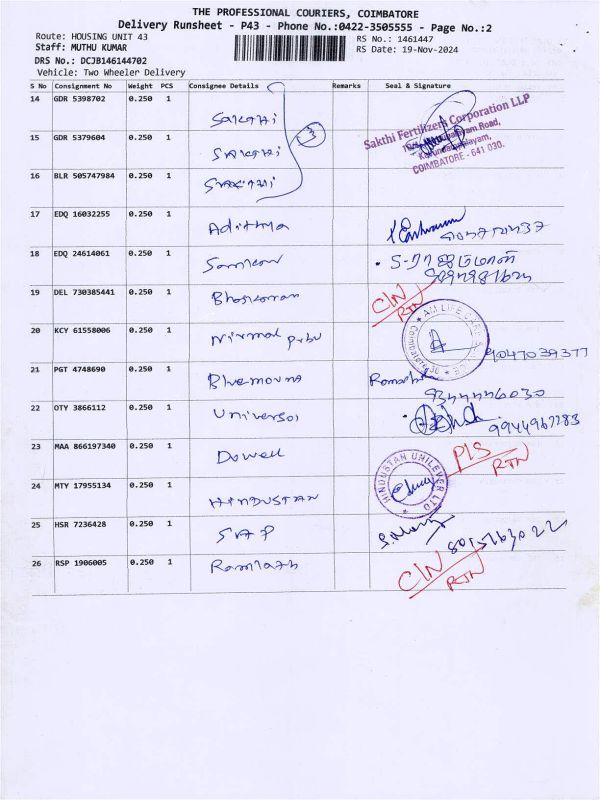 THE PROFESSIONAL COURIERS, COIMBATORE
Delivery Runsheet - P43 - Phone No.:0422-3505555 - Page No.:2
Route: HOUSING UNIT 43
Staff: MUTHU KUMAR
RS No.: 1461447
RS Date: 19-Nov-2024
DRS No.: DCJB146144702
Vehicle: Two Wheeler Delivery
S No Consignment No Weight PCS Consignee Details Remarks Seal & Signature
14 GDR 5398702 0.250 1 Sakthi
3
Sakthi Fertilizers Corporation LLP
COIMBATORE - 641 030.
15 GDR 5379604 0.250 1 SAKTHI
16 BLR 505747984 0.250 1 SAKTHI
17 EDQ 16032255 0.250 1 Adithya
18 EDQ 24614061 0.250 1
19 DEL 730385441 0.250 1 Bhaskaran C/N RTN
20 KCY 61558006 0.250 1 Nirmal prbu AM LIFE CARE 9047039377
21 PGT 4748690 0.250 1 9344446030
22 OTY 3866112 0.250 1 Universal 9944967283
23 MAA 866197340 0.250 1 Dowell P/S RTN
24 MTY 17955134 0.250 1 HINDUSTAN HINDUSTAN UNILEVER LTD
25 HSR 7236428 0.250 1 SAP
26 RSP 1906005 0.250 1 C/N RTN